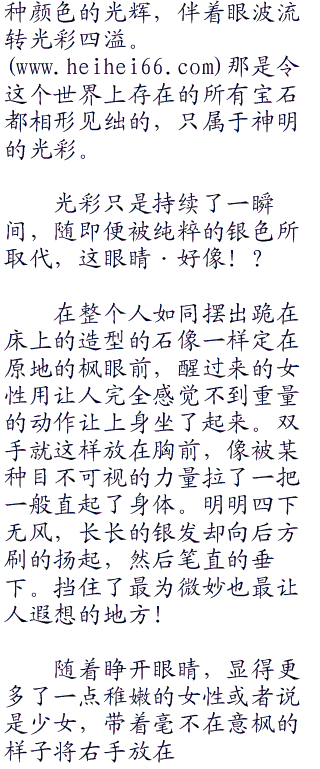 种颜色的光辉，伴着眼波流
转光彩四溢。
(www.heihei66.com)那是令
这个世界上存在的所有宝石
都相形见绌的，只属于神明
的光彩。
光彩只是持续了一瞬
间，随即便被纯粹的银色所
取代，这眼睛·好像！？
在整个人如同摆出跪在
床上的造型的石像一样定在
原地的枫眼前，醒过来的女
性用让人完全感觉不到重量
的动作让上身坐了起来。双
手就这样放在胸前，像被某
种目不可视的力量拉了一把
一般直起了身体。明明四下
无风，长长的银发却向后方
刷的扬起，然后笔直的垂
下。挡住了最为微妙也最让
人遐想的地方！
随着睁开眼睛，显得更
多了一点稚嫩的女性或者说
是少女，带着毫不在意枫的
样子将右手放在